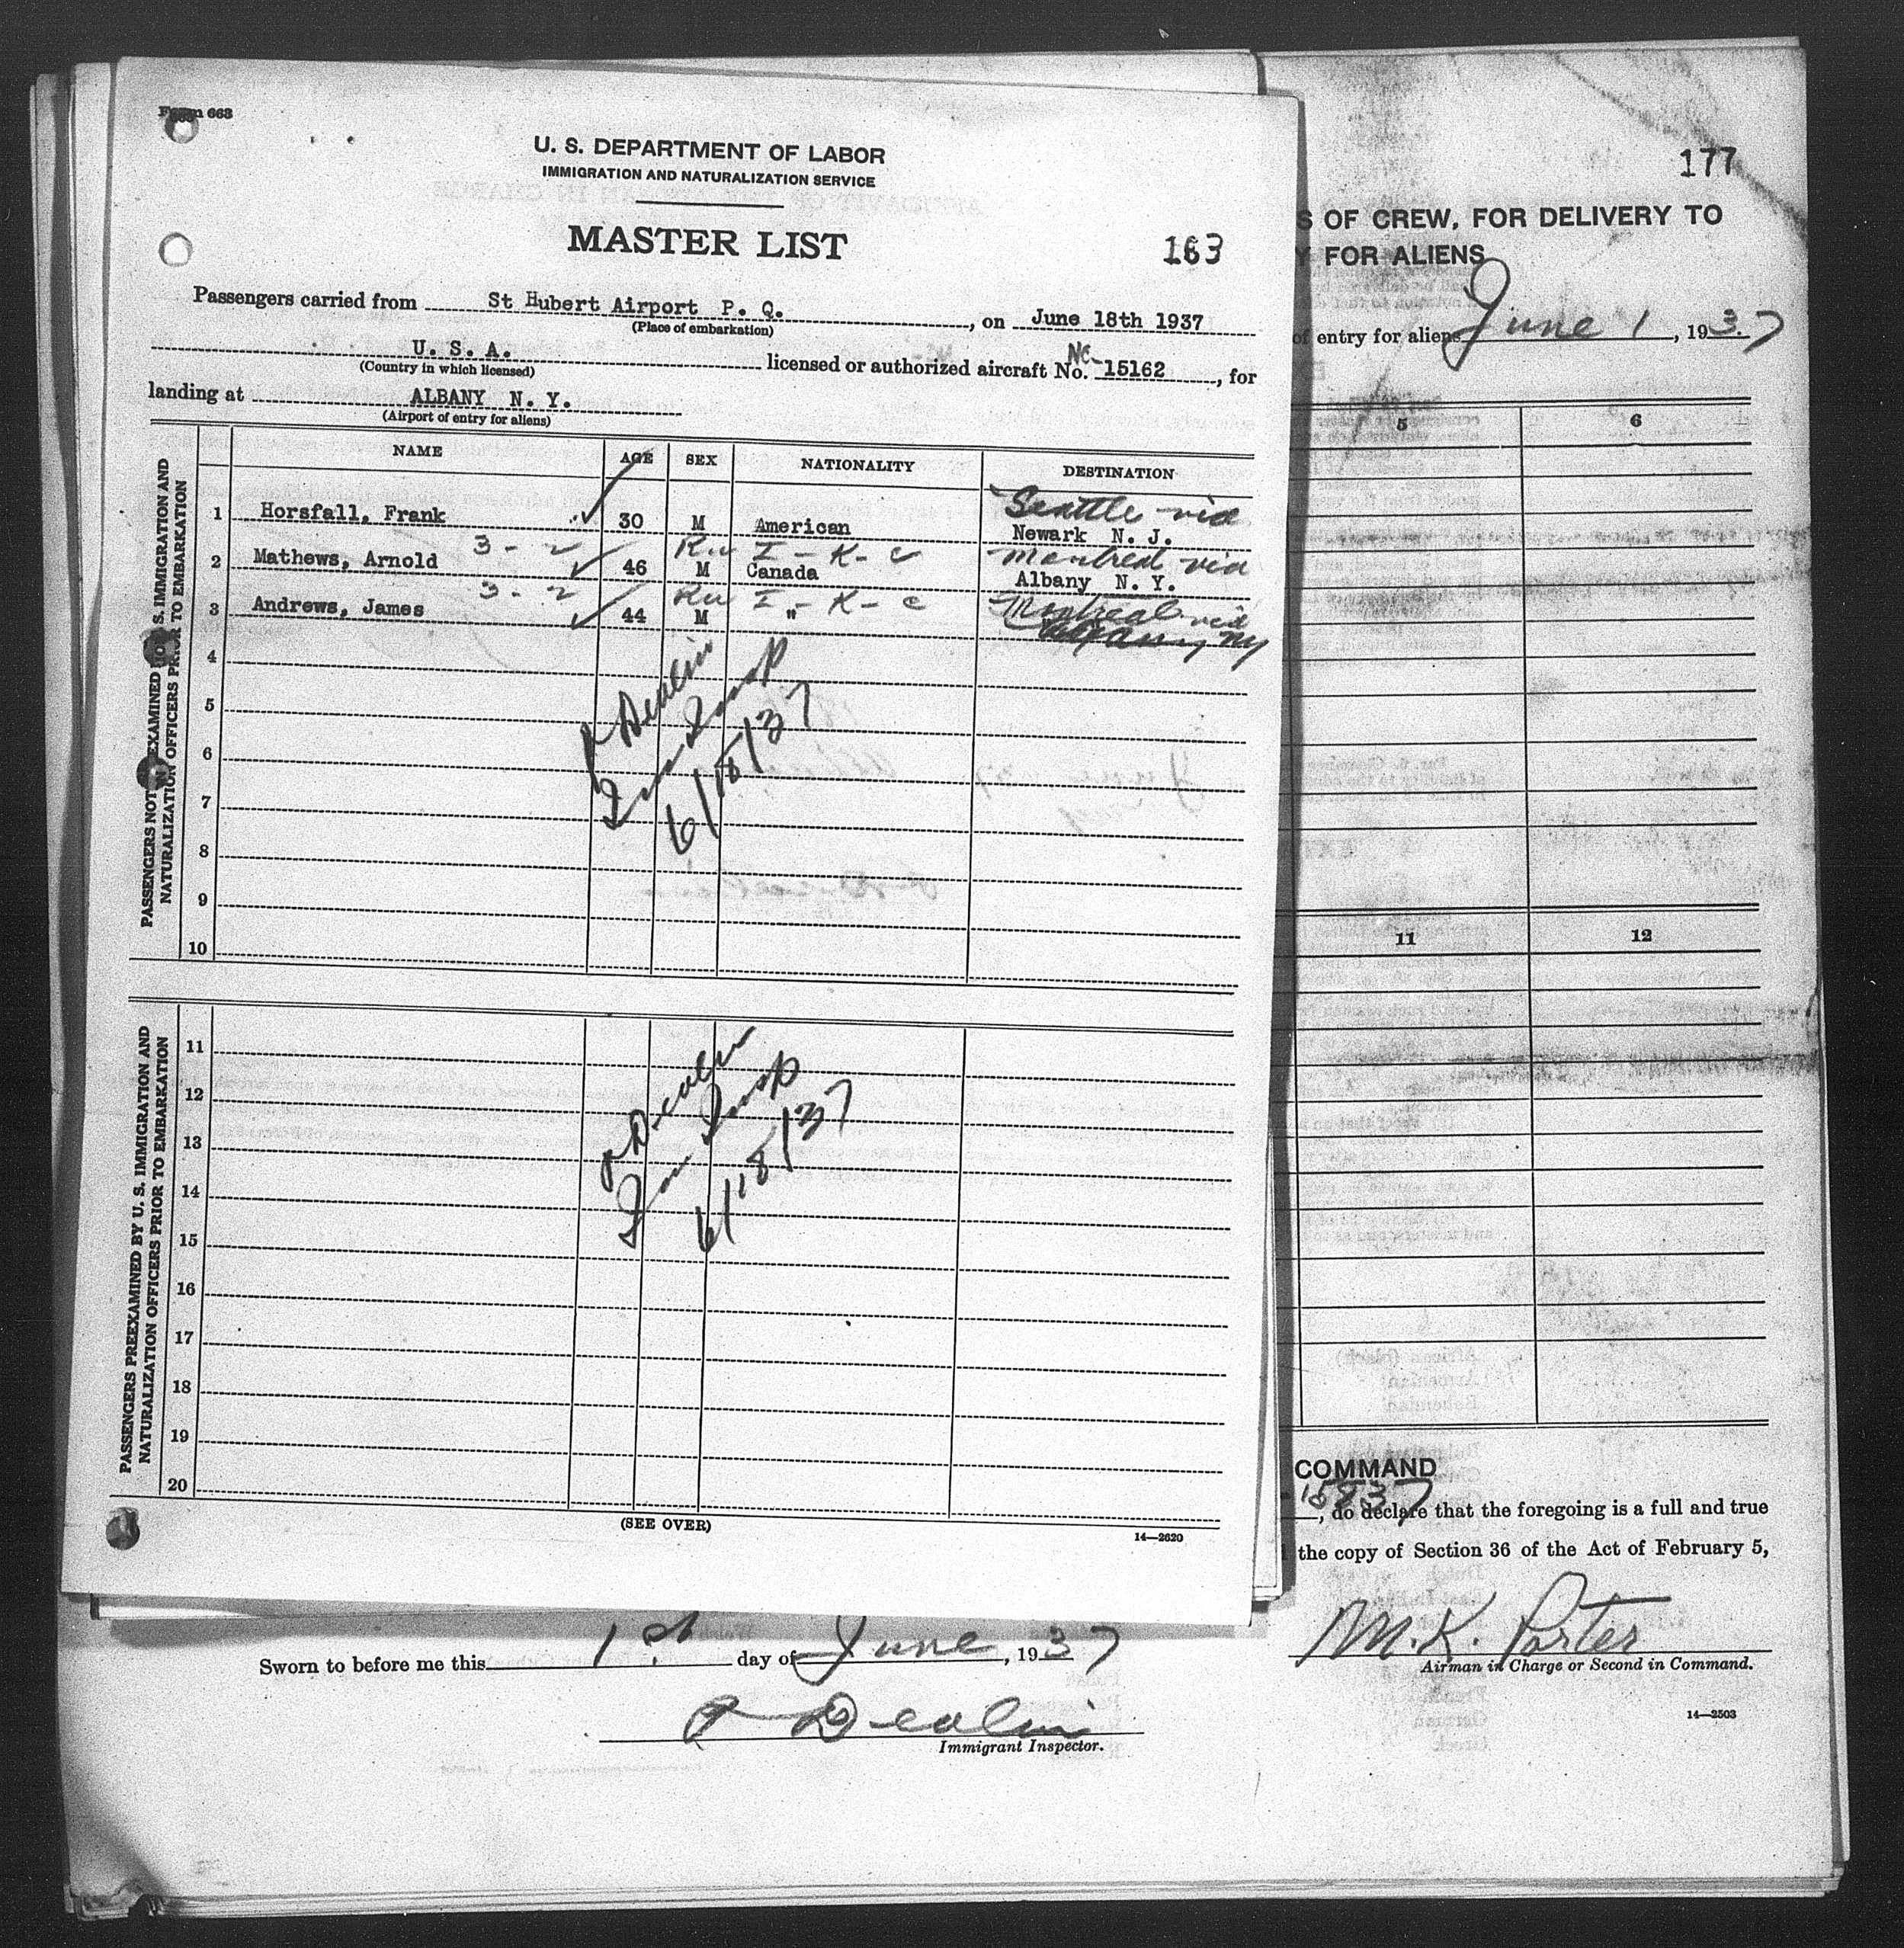 Form 663
U. S. DEPARTMENT OF LABOR
IMMIGRATION AND NATURALIZATION SERVICE
MASTER LIST
163
Passengers carried from St Hubert Airport P. Q., on June 18th 1937
(Place of embarkation)
U. S. A. licensed or authorized aircraft No. NC- 15162, for
(Country in which licensed)
landing at ALBANY N. Y.
(Airport of entry for aliens)
NAME AGE SEX NATIONALITY DESTINATION
PASSENGERS NOT EXAMINED BY U. S. IMMIGRATION AND
NATURALIZATION OFFICERS PRIOR TO EMBARKATION
Seattle via
1 Horsfall, Frank 30 M American Newark N. J.
3 - 2 I - K - c Montreal via
2 Mathews, Arnold 46 M Canada Albany N. Y.
3 - 2 I - K - c Montreal via
3 Andrews, James 44 M " Albany NY
4
5
6
7
8
9
10
Dealin
Imm Insp
6/18/37
PASSENGERS PREEXAMINED BY U. S. IMMIGRATION AND
NATURALIZATION OFFICERS PRIOR TO EMBARKATION
11
12
13
14
15
16
17
18
19
20
Dealin
Imm Insp
6/18/37
(SEE OVER)
14—2620
177
S OF CREW, FOR DELIVERY TO
Y FOR ALIENS
of entry for aliens June 1, 1937
5 6
11 12
COMMAND
15837
, do declare that the foregoing is a full and true
the copy of Section 36 of the Act of February 5,
M. K. Porter
Airman in Charge or Second in Command.
14—2503
Sworn to before me this 1st day of June, 1937
Dealin
Immigrant Inspector.